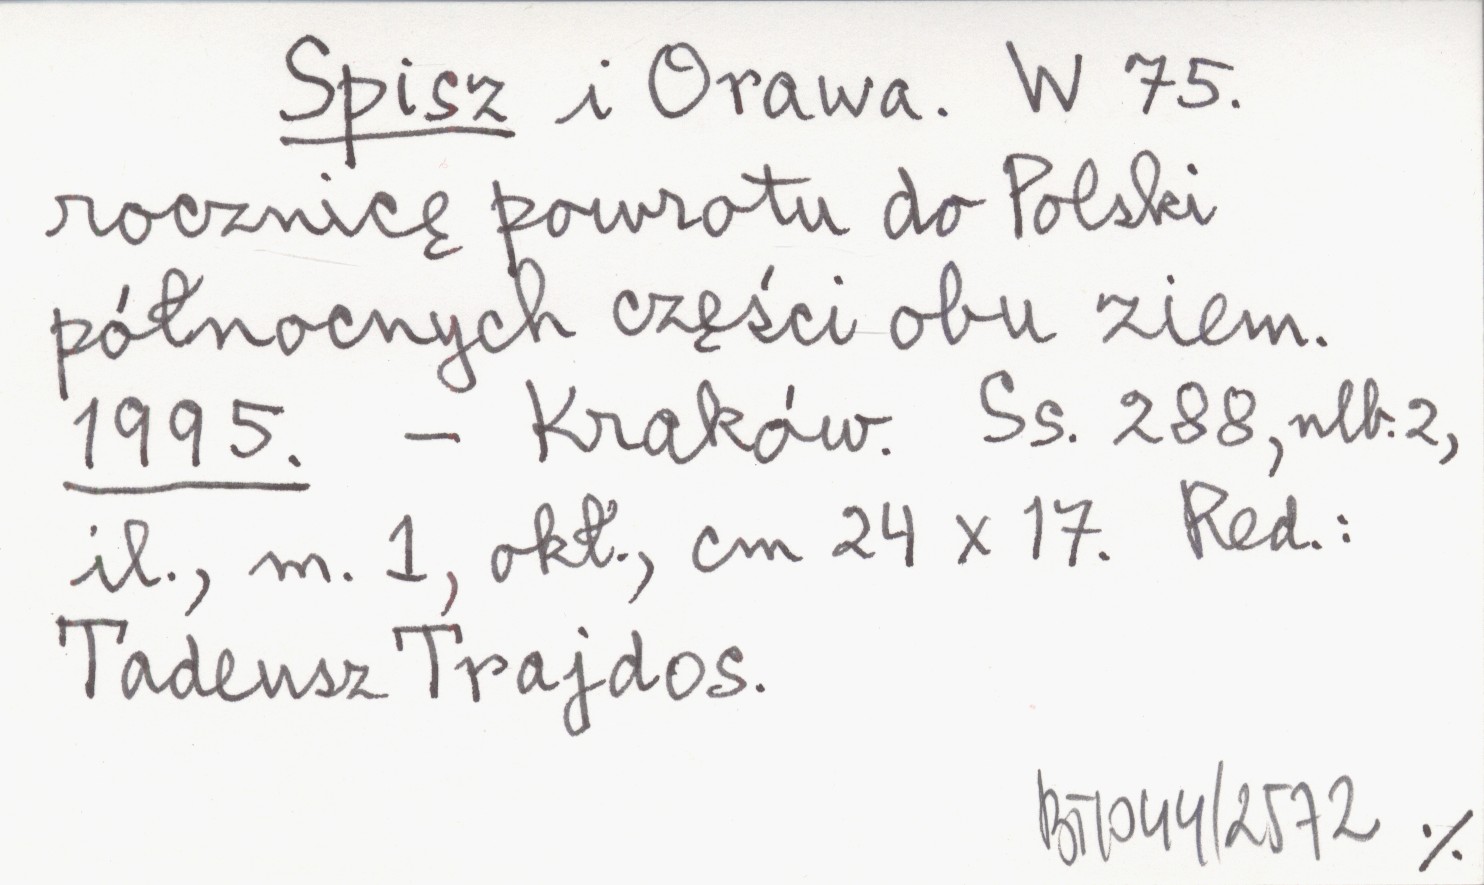 Spisz i Orawa. W 75.
rocznicę powrotu do Polski
północnych części obu ziem.
1995. – Kraków. Ss. 288, nlb. 2,
il., m. 1, okł., cm 24 x 17. Red.:
Tadeusz Trajdos.
BT/044/2572 ./.